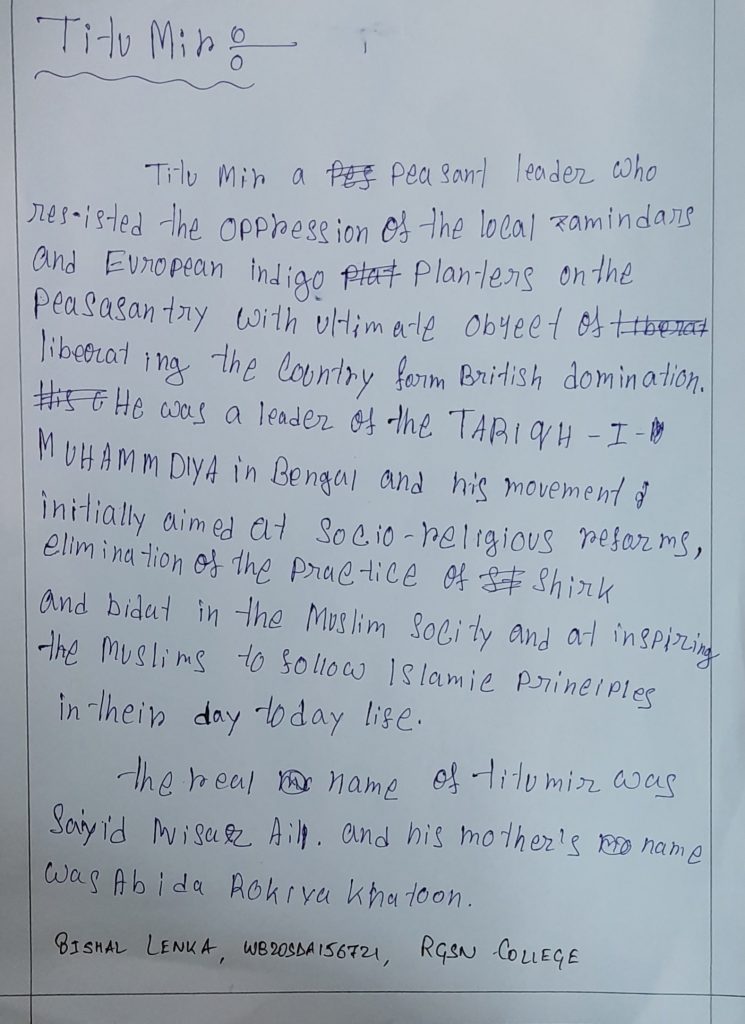 Titu Mir :-
Titu Mir a peasant leader who
resisted the oppression of the local zamindars
and European indigo planters on the
peasasantry with ultimate obyect of
libeorating the Country form British domination.
He was a leader of the TARIQH-I-
MUHAMMDIYA in Bengal and his movement
initially aimed at Socio-religious reforms,
elimination of the practice of Shirk
and bidat in the Muslim Socity and at inspiring
the Muslims to follow Islamic principles
in their day today life.
the real name of titumir was
Saiyid Ail. and his mother's name
was Abida Rokiya Khatoon.
BISHAL LENKA, WB20SDA156721, RGSN COLLEGE